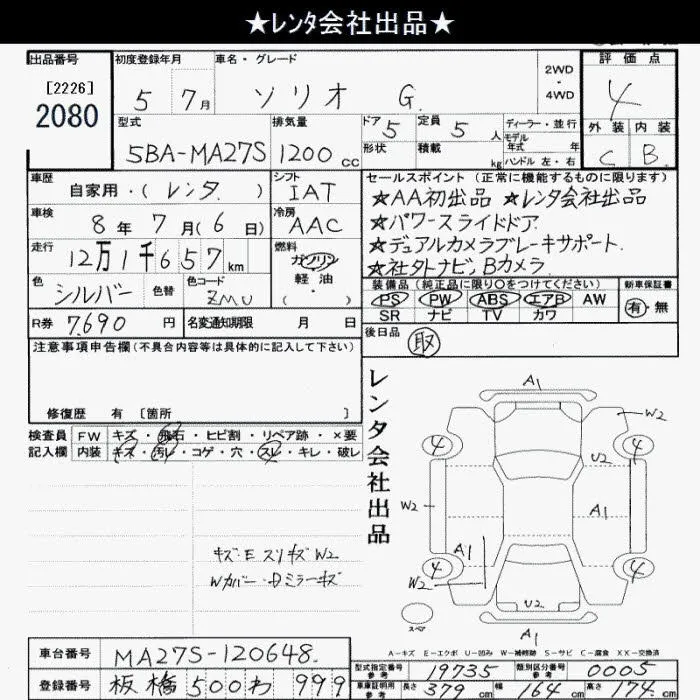 ★レンタ会社出品★
出品番号
[2226]
2080
初度登録年月
5年 7月
車名・グレード
ソリオ G.
2WD
・
4WD
評価点
4
外装 内装
C B
型式
5BA-MA27S
排気量
1200 cc
ドア 5
形状
定員 5 人
積載 kg
ディーラー・並行
モデル
年式 年
ハンドル 左・右
車歴
自家用・(レンタ)
シフト
IAT
車検
8年 7月(6日)
冷房
AAC
走行
12万1千657km
燃料
ガソリン
軽油
( ・ )
色
シルバー
色替
色コード
ZMU
R券 7,690 円
名変通知期限 月 日
セールスポイント(正常に機能するものに限ります)
★AA初出品 ★レンタ会社出品
★パワースライドドア
★デュアルカメラブレーキサポート.
★社外ナビ,Bカメラ
装備品(純正品に限り○をつけてください)
PS PW ABS エアB AW
SR ナビ TV カワ
新車保証書
有・無
後日品 取
注意事項申告欄(不具合内容等は具体的に記入して下さい)
修復歴 有 [箇所 ]
検査員
記入欄
FW キズ・飛石・ヒビ割・リペア跡・×要
内装 キズ・汚レ・コゲ・穴・スレ・キレ・破レ
キズ・E スリキズ W2
Wカバー・Dミラーキズ
レンタ会社出品
A1
W2
4
4
U2
W2
A1
A1
W2
4
4
U2
A1
スペア
A-キズ E-エクボ U-凹み W-補修跡 S-サビ C-腐食 XX-交換済
車台番号
MA27S-120648.
登録番号
板橋 500 わ 999
型式指定番号
参考
19735
類別区分番号
参考
0005
車庫証明用
参考
長さ 379 cm
幅 164 cm
高さ 174 cm